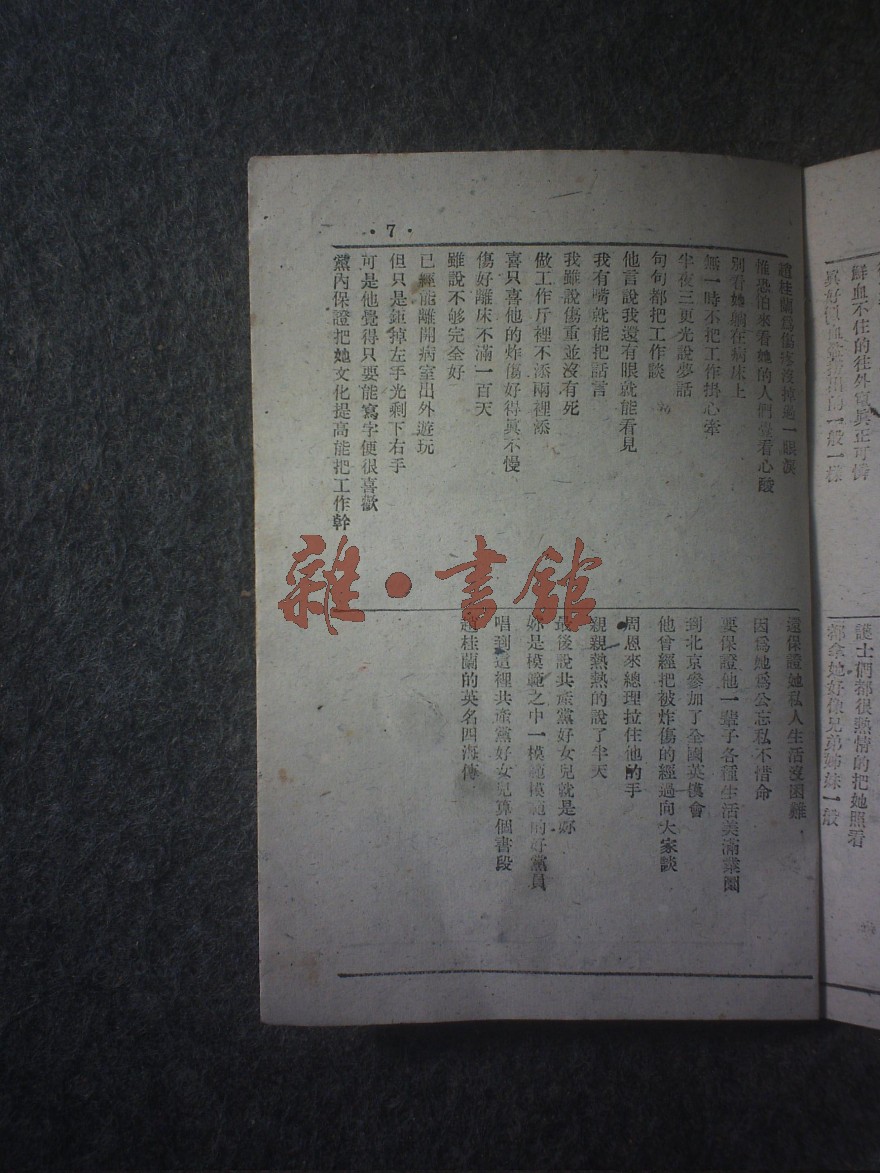 鮮血不住的往外
護士們都很熱情的把她照看
都拿她好像兄弟姊妹一般
·7·
趙桂蘭為傷疼沒掉過一眼淚
惟恐怕來看她的人們壹看心酸
別看她躺在病床上
無一時不把工作掛心牽
半夜三更光說夢話
句句都把工作談
他言說我還有眼就能看見
我有嘴就能把話言
我雖說傷重並沒有死
做工作斤裡不添兩裡添
喜只喜他的炸傷好得眞不慢
傷好離床不滿一百天
雖說不够完全好
已經能離開病室出外遊玩
但只是鉅掉左手光剩下右手
可是他覺得只要能寫字便很喜歡
黨內保證把她文化提高能把工作幹
還保證她私人生活沒困難
因爲她爲公忘私不惜命
要保證他一輩子各種生活美滿業圍
到北京參加了全國英模會
他曾經把被炸傷的經過向大家談
周恩來總理拉住他的手
親親熱熱的說了半天
最後說共產黨好女兒就是妳
妳是模範之中一模範模範的好黨員
唱到這裡共產黨好女兒算個書段
趙桂蘭的英名四海傳
雜·書館